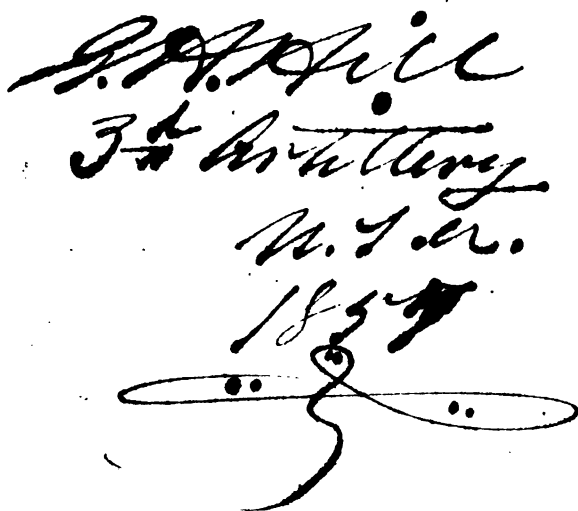 G. A. Hill
3d Artillery
U. S. A.
1857